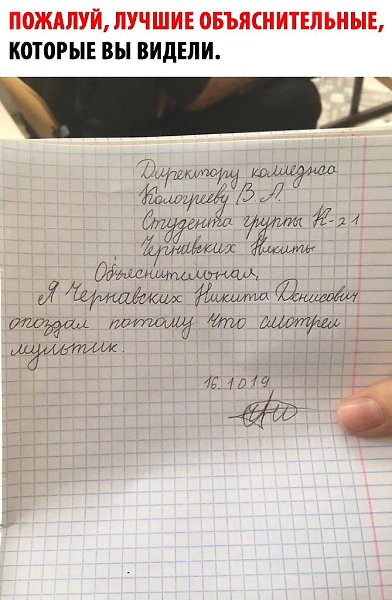 ПОЖАЛУЙ, ЛУЧШИЕ ОБЪЯСНИТЕЛЬНЫЕ,
КОТОРЫЕ ВЫ ВИДЕЛИ.
Директору колледжа
Кологрееву В. А.
Студента группы К-21
Чернавских Никиты
Объяснительная,
Я Чернавских Никита Денисович
опоздал потому что смотрел
мультик.
16.1019